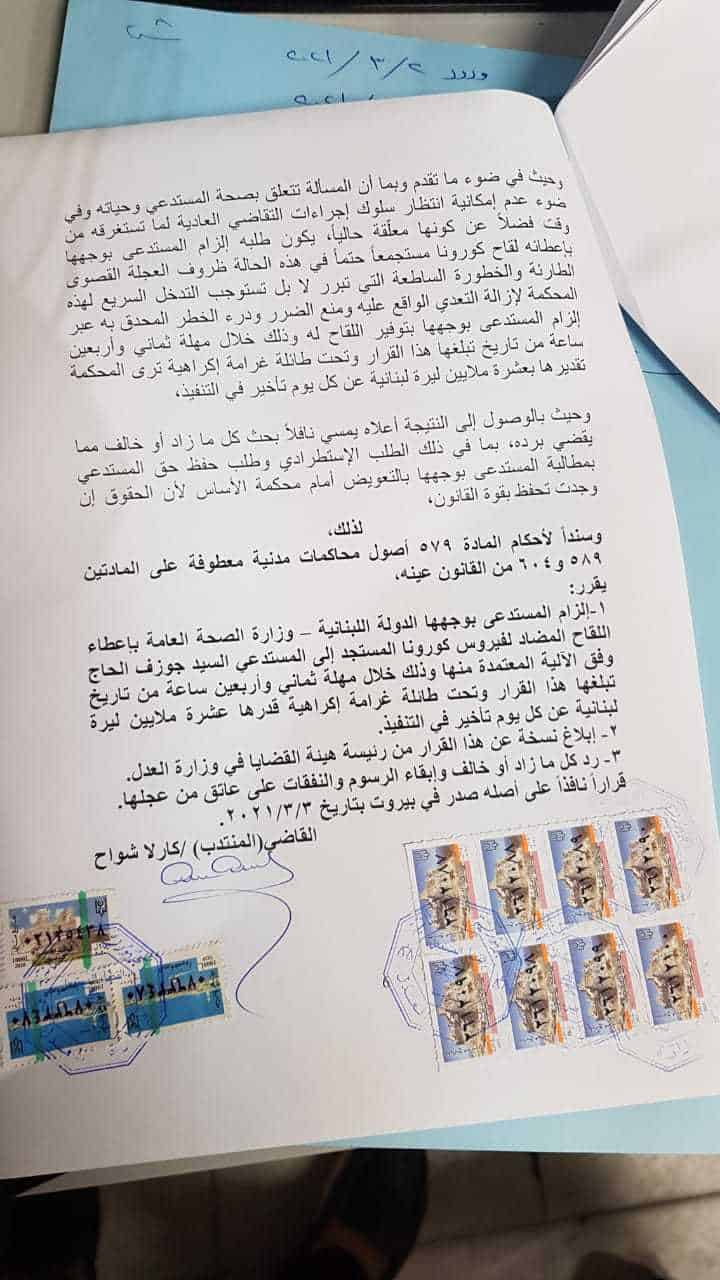 ورود ٢/٣/٢٠٢١
وحيث في ضوء ما تقدم وبما أن المسألة تتعلق بصحة المستدعي وحياته وفي
ضوء عدم إمكانية انتظار سلوك إجراءات التقاضي العادية لما تستغرقه من
وقت فضلاً عن كونها معلّقة حالياً، يكون طلبه إلزام المستدعى بوجهها
بإعطائه لقاح كورونا مستجمعاً حتماً في هذه الحالة ظروف العجلة القصوى
الطارئة والخطورة الساطعة التي تبرر لا بل تستوجب التدخل السريع لهذه
المحكمة لإزالة التعدي الواقع عليه ومنع الضرر ودرء الخطر المحدق به عبر
إلزام المستدعى بوجهها بتوفير اللقاح له وذلك خلال مهلة ثماني وأربعين
ساعة من تاريخ تبلغها هذا القرار وتحت طائلة غرامة إكراهية ترى المحكمة
تقديرها بعشرة ملايين ليرة لبنانية عن كل يوم تأخير في التنفيذ،
وحيث بالوصول إلى النتيجة أعلاه يمسي نافلاً بحث كل ما زاد أو خالف مما
يقضي برده، بما في ذلك الطلب الإستطرادي وطلب حفظ حق المستدعي
بمطالبة المستدعى بوجهها بالتعويض أمام محكمة الأساس لأن الحقوق إن
وجدت تحفظ بقوة القانون،
لذلك،
وسنداً لأحكام المادة ٥٧٩ أصول محاكمات مدنية معطوفة على المادتين
٥٨٩ و٦٠٤ من القانون عينه،
يقرر:
١-إلزام المستدعى بوجهها الدولة اللبنانية – وزارة الصحة العامة بإعطاء
اللقاح المضاد لفيروس كورونا المستجد إلى المستدعي السيد جوزف الحاج
وفق الآلية المعتمدة منها وذلك خلال مهلة ثماني وأربعين ساعة من تاريخ
تبلغها هذا القرار وتحت طائلة غرامة إكراهية قدرها عشرة ملايين ليرة
لبنانية عن كل يوم تأخير في التنفيذ.
٢- إبلاغ نسخة عن هذا القرار من رئيسة هيئة القضايا في وزارة العدل.
٣- رد كل ما زاد أو خالف وإبقاء الرسوم والنفقات على عاتق من عجلها.
قراراً نافذاً على أصله صدر في بيروت بتاريخ ٢٠٢١/٣/٣.
القاضي(المنتدب) /كارلا شواح